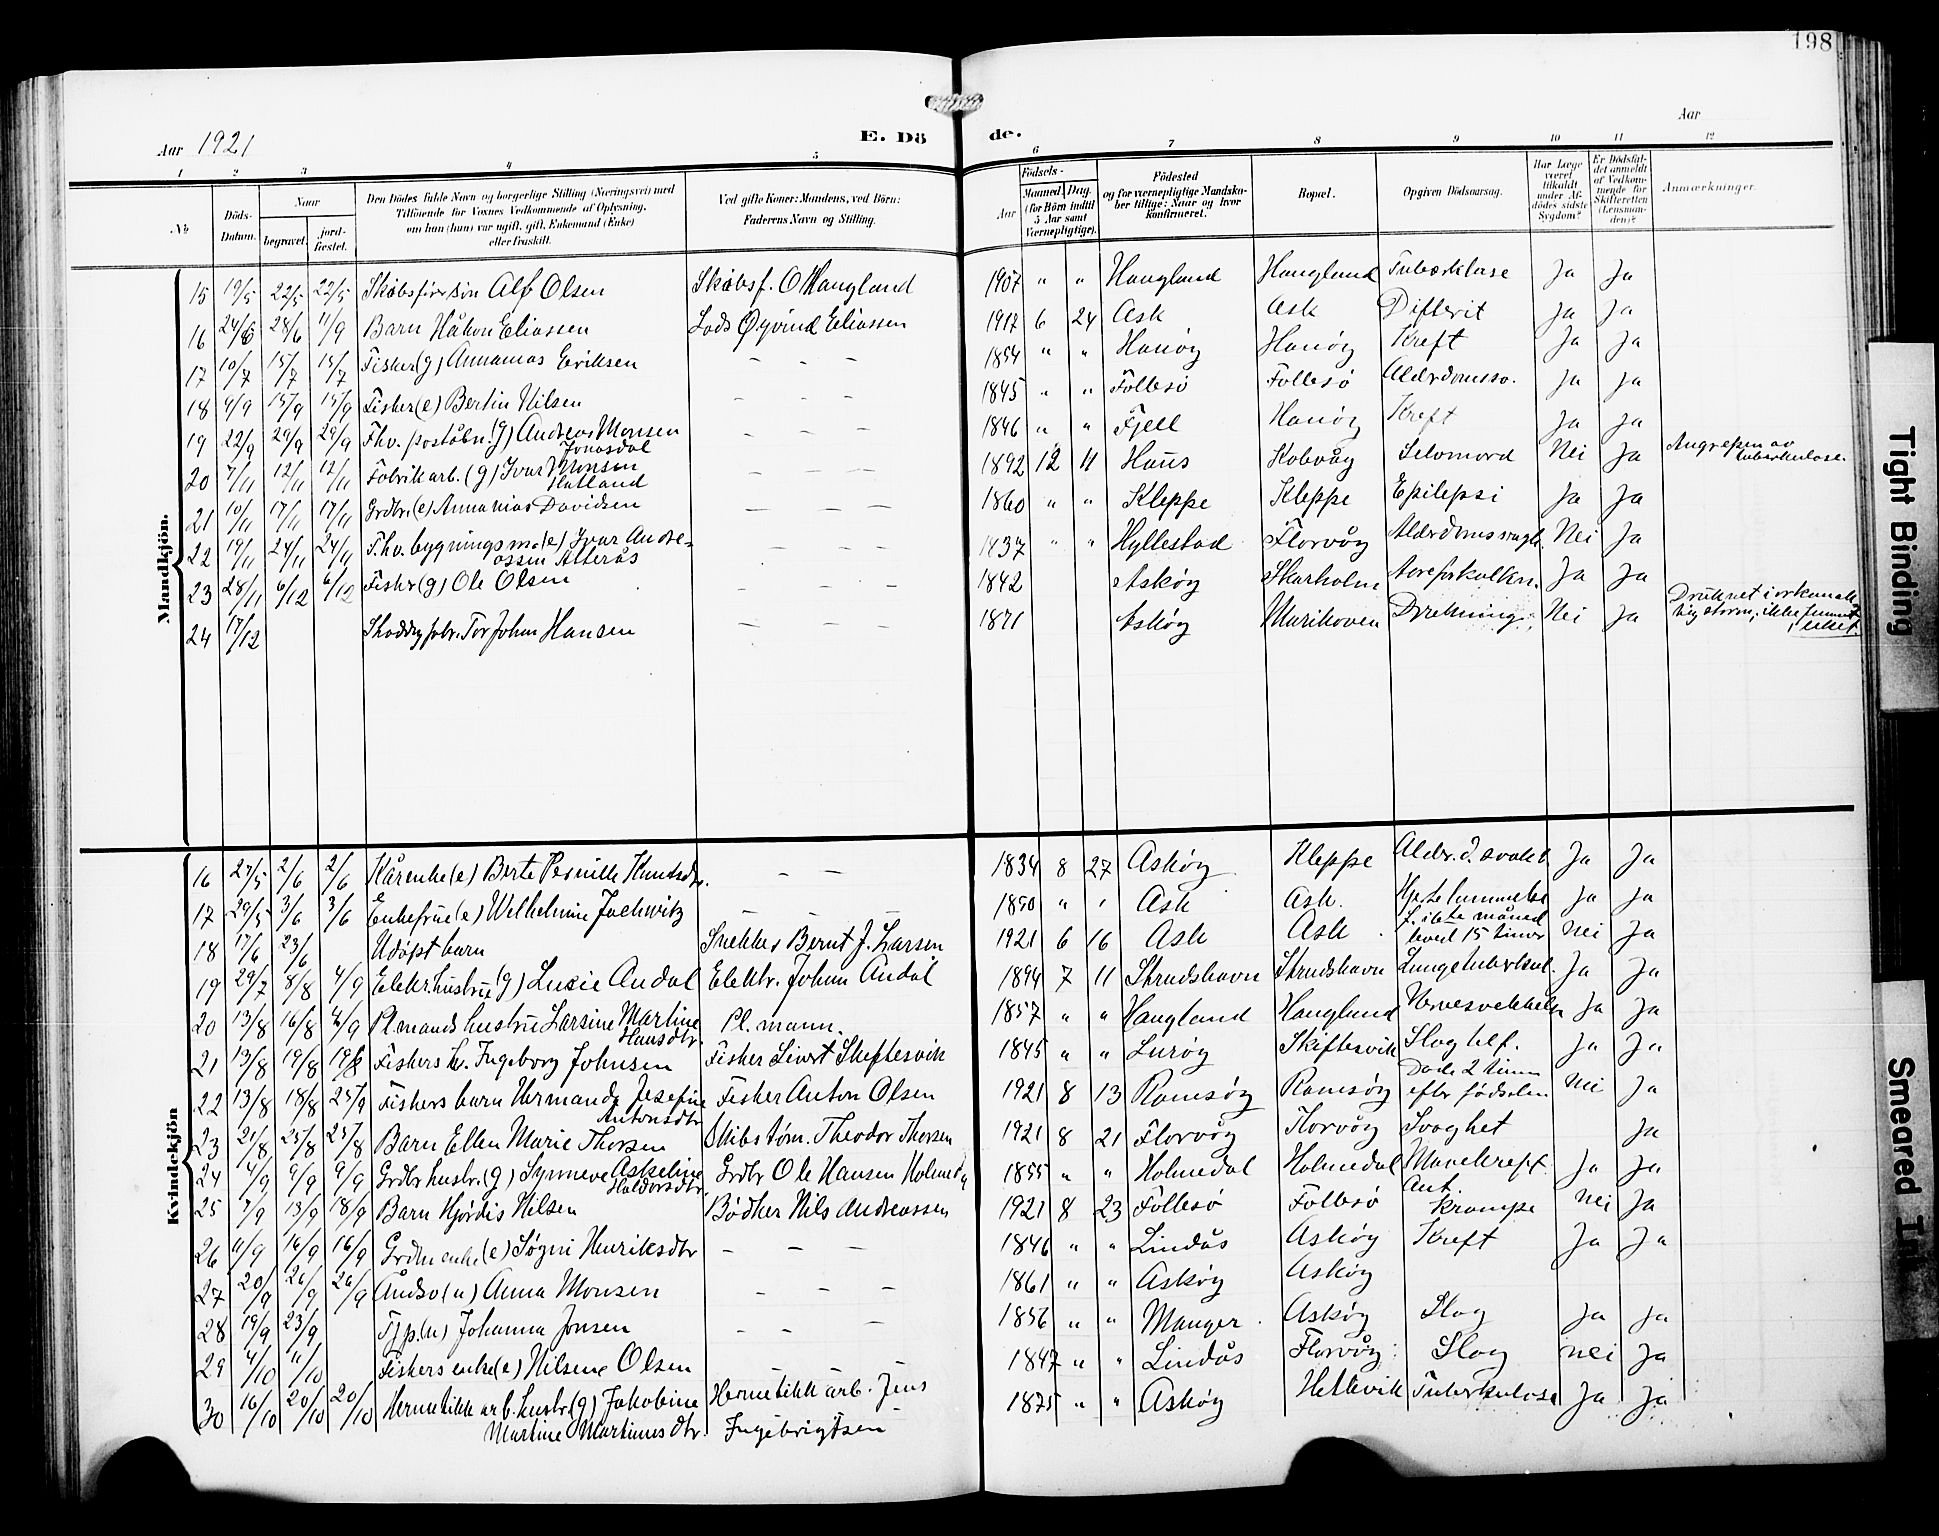 198
Aar 1921
E. Dö
de.
Aar
1 2 3 4 5 6 7 8 9 10 11 12
No
Döds-Datum.
Naar
begravet.
jord-fæstet.
Den Dödes fulde Navn og borgerlige Stilling (Næringsvei) med
Tilföiende for Voxnes Vedkommende af Oplysning,
om han (hun) var ugift, gift, Enkemand (Enke)
eller fraskilt.
Ved gifte Koner: Mandens, ved Börn:
Faderens Navn og Stilling.
Födsels-
Aar
Maaned. Dag.
(for Börn indtil 5 Aar samt Værnepligtige).
Födested
og for værnepligtige Mandskaber tillige: Naar og hvor konfirmeret.
Bopæl.
Opgiven Dödsaarsag.
Har Læge været tilkaldt under Afdödes sidste Sygdom?
Er Dödsfaldet anmeldt af Vedkommende for Skifteretten (Lensmanden)?
Anmærkninger.
Mandkjön.
15 19/5 22/5 22/5 Skåbsfører sön Alf Olsen Skåbsf. O Haugland 1907 " " Haugland Haugland Tuberklose Ja Ja
16 24/6 28/6 11/9 Barn Håkon Eliassen Lods Øyvind Eliassen 1917 6 24 Ask Ask Difterit Ja Ja
17 10/7 15/7 15/7 Fisker (g) Annanias Eriksen — — — 1854 " " Hanøy Hanøy Kreft Ja Ja
18 9/9 15/9 15/9 Fisker (e) Bertin Nilsen — — — 1845 " " Follesø Follesø Alderdomssv. Ja Ja
19 22/9 29/9 29/9 Fhv. poståbn. (g) Andreas Monsen Jonasdal — — — 1846 " " Fjell Hanøy Kreft Ja Ja
20 7/11 12/11 12/11 Fabrikarb. (g) Ivar Monsen Hatland — — — 1892 12 11 Haus Kobvåg Selvmord Nei Ja Angrepen av tuberkulose.
21 10/11 17/11 17/11 Grdbr. (e) Annanias Davidsen — — — 1860 " " Kleppe Kleppe Epilepsi Ja Ja
22 19/11 24/11 24/11 F.hv. bygningsm. (e) Ivar Andreassen Alterås — — — 1837 " " Hyllestad Florvåg Alderdomssvagh. Nei Ja
23 28/11 6/12 6/12 Fisker (g) Ole Olsen — — — 1842 Askøy Skarholm Aareforkalkn. Ja Ja
24 17/12 Skoddyfabr. Tor Johan Hansen — — — 1871 Askøy Marikoven Drukning. Nei Ja Druknet i orkanaktig storm, ikke funnet i liket.
Kvindekjön
16 27/5 2/6 2/6 Kårenke (e) Berte Pernille Knutsdtr. — — 1834 8 27 Askøy Kleppe Alderd. svakh. Ja Ja
17 29/5 3/6 3/6 Enkefrue (e) Wilhelmine Jachwitz — — — 1850 " " Ask Ask. Hjertelammelse Ja Ja
18 17/6 23/6 Udöpt barn Snekker Bernt J. Larsen 1921 6 16 Ask Ask F. i 6te måned levet 15 timer Nei Ja
19 29/7 8/8 4/9 Elektr. hustrue (g) Lucie Andal Elektr. Johan Andal 1894 7 11 Strudshavn Strudshavn Lungetuberkul. Ja Ja
20 13/8 16/8 4/9 Pl.mands hustru Larsine Martine Hansdtr. Pl. mann. 1857 " " Haugland Haugland Nervesvekkelse Ja Ja
21 13/8 19/8 19/8 Fiskers h. Ingeborg Johnsen Fisker Sivert Skiftesvik 1845 " " Lurøy Skiftesvik Slag tilf. Ja Ja
22 13/8 18/8 25/9 Fiskers barn Hermande Jesefine Antonsdtr. Fisker Anton Olsen 1921 8 13 Ramsøy Ramsøy Døde 2 timer efter fødselen Nei Ja
23 21/8 25/8 25/8 Barn Ellen Marie Thorsen Skibstøm. Theodor Thorsen 1921 8 21 Florvåg Florvåg Svaghet Ja
24 4/9 9/9 9/9 Grdbr hustr. (g) Synneve Askeline Haldorsdtr. Grdbr Ole Hansen Holmedal 1855 " " Holmedal Holmedal Mavekreft. Ja Ja
25 7/9 13/9 18/9 Barn Hjördis Nilsen Bødker Nils Andreassen 1921 8 23 Follesø Follesø Ant. krampe Nei Ja
26 11/9 16/9 16/9 Grdbr enke (e) Søgni Henriksdtr — — — 1846 " " Lindås Askøy Kreft Ja Ja
27 20/9 26/9 26/9 Åndsv (u) Anna Monsen — — — 1861 " " Askøy Askøy
28 19/9 23/9 Tjp. (u) Johanna Jonsen — — — 1856 " " Manger Askøy Slag Ja Ja
29 4/10 11/10 Fiskers enke (e) Nilsine Olsen — — — 1847 " " Lindås Florvåg Slag Nei Ja
30 16/10 20/10 20/10 Hermetikk arb. hustr. (g) Jakobine Martine Martinusdtr. Hermetikk arb. Jens Ingebrigtsen 1875 " " Askøy Hetlevik Tuberkulose Ja Ja
Tight Binding
Smeared Ink